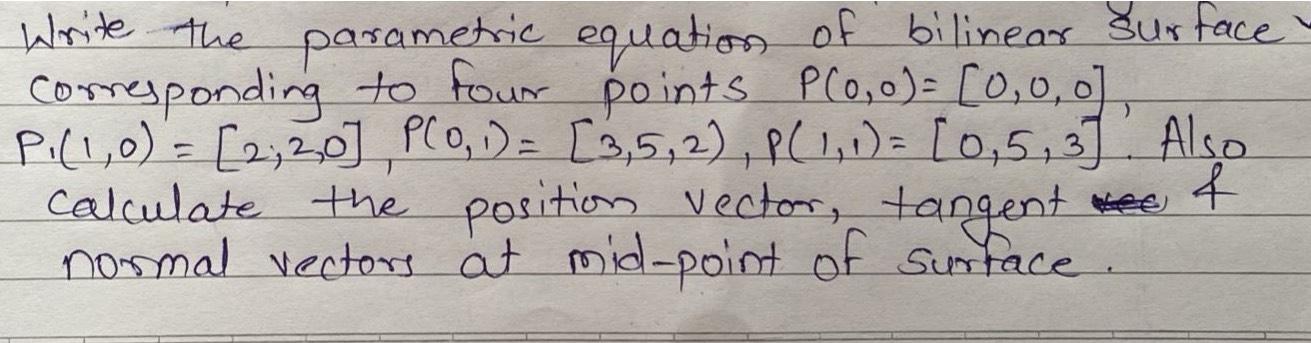 Write the parametric equation of bilinear Surface
Corresponding to four points P(0,0)= [0,0,0],
P₁(1,0) = [2,2,0], P(0,1) = [3,5,2), P(1,1)= [0,5,3]. Also
Calculate the position vector, tangent &
normal vectors at mid-point of Surface.